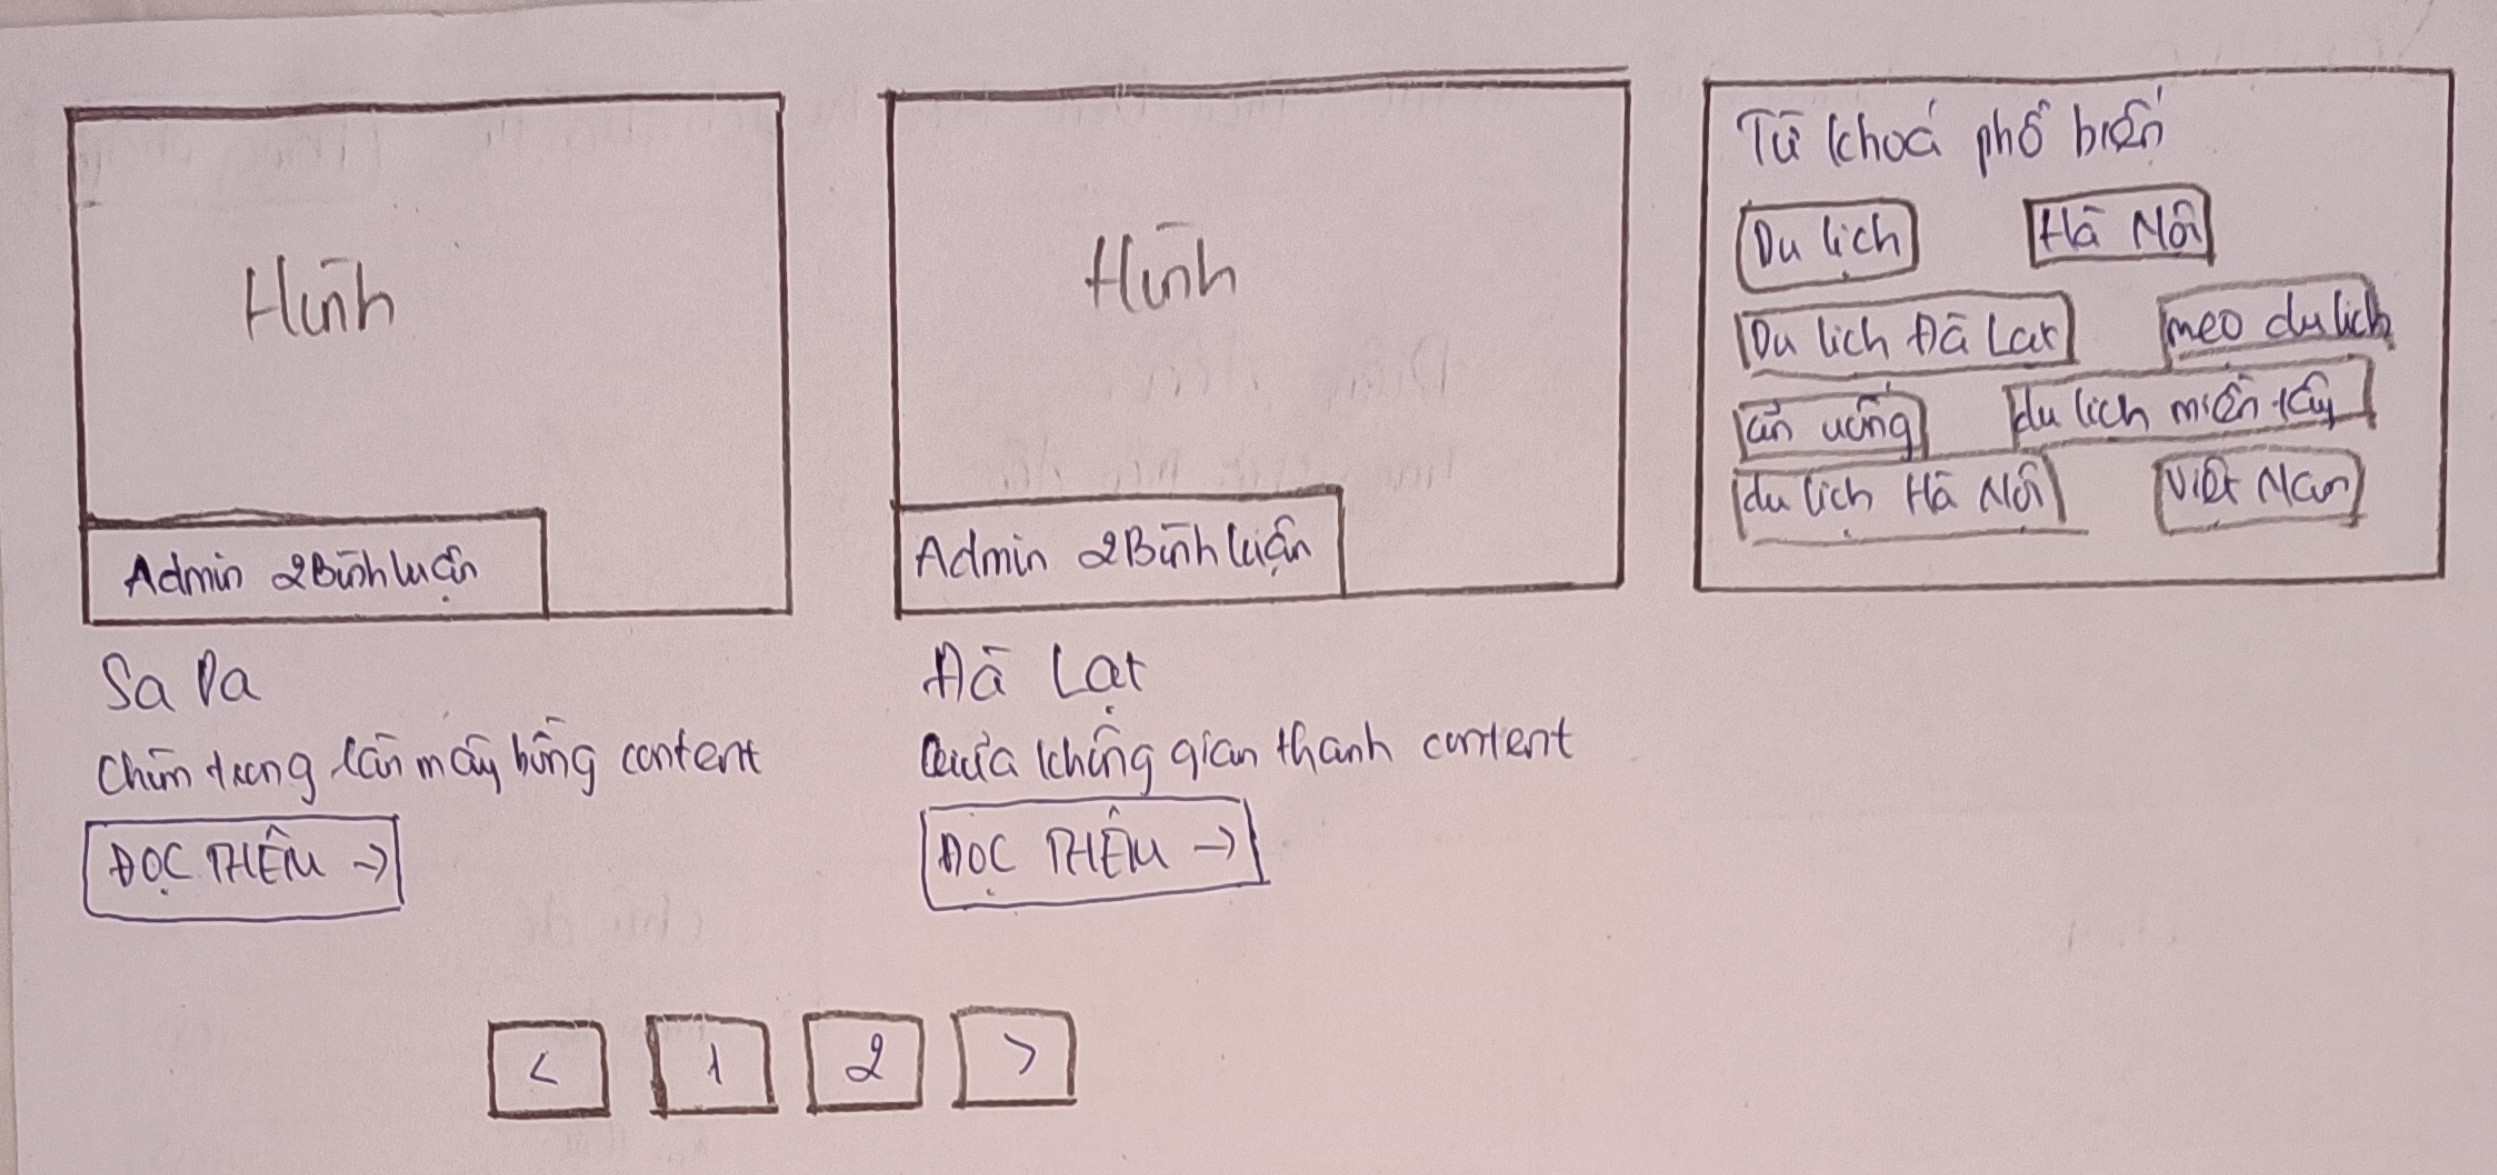 Hình
Admin 2 Bình luận
Sa Pa
Chìm trong làn mây bồng content
ĐỌC THÊM →
Hình
Admin 2 Bình luận
Đà Lạt
Giữa không gian thanh content
ĐỌC THÊM →
Từ khoá phổ biến
Du lịch Hà Nội
Du lịch Đà Lạt mẹo du lịch
ăn uống du lịch miền tây
du lịch Hà Nội Việt Nam
< 1 2 >